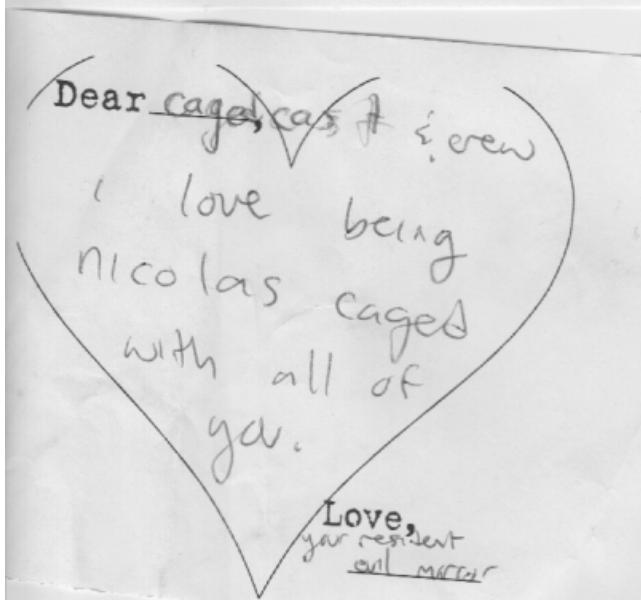 Dear caged, cast & crew
i love being
nicolas caged
with all of
you.
Love,
your resident
evil mirror